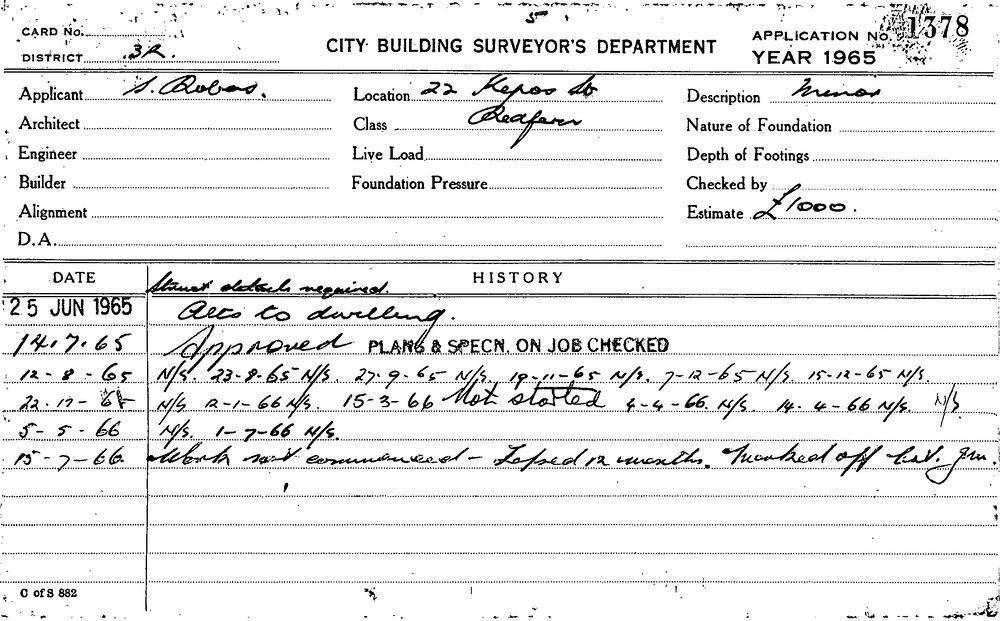 5
CARD No.
DISTRICT 3R.
CITY BUILDING SURVEYOR'S DEPARTMENT
APPLICATION No. 1378
YEAR 1965
Applicant S. Robas. Location 22 Kepos St Description Minor
Architect Class Redfern Nature of Foundation
Engineer Live Load Depth of Footings
Builder Foundation Pressure Checked by
Alignment Estimate £1000.
D.A.
DATE HISTORY
Struct details required.
25 JUN 1965 Alts to dwelling.
14.7.65 Approved PLANS & SPECN. ON JOB CHECKED
12-8-65 N/S. 23-8-65 N/S. 27-9-65 N/S. 19-11-65 N/S. 7-12-65 N/S. 15-12-65 N/S.
22-12-65 N/S 2-1-66 N/S. 15-3-66 Not started 4-4-66. N/S. 14-4-66 N/S. N/S
5-5-66 N/S. 1-7-66 N/S.
15-7-66. Work not commenced - Lapsed 12 months. Marked off list.
C of S 882